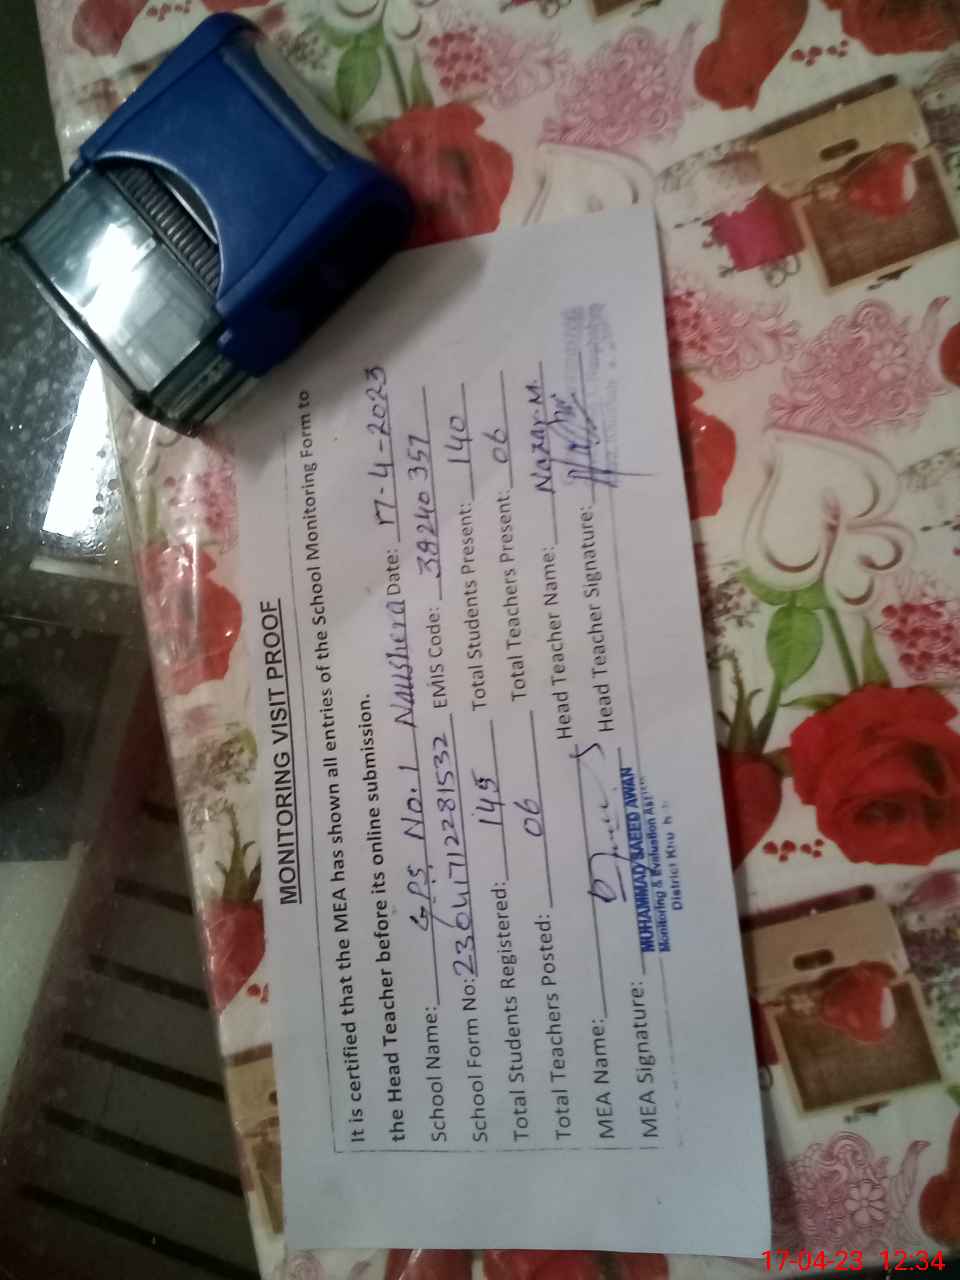 MONITORING VISIT PROOF
It is certified that the MEA has shown all entries of the School Monitoring Form to
the Head Teacher before its online submission.
School Name: GPS No.1 Naushera Date: 17-4-2023
School Form No: 230417112281532 EMIS Code: 38240357
Total Students Registered: 145 Total Students Present: 140
Total Teachers Posted: 06 Total Teachers Present: 06
MEA Name: Head Teacher Name: Nazar M.
MEA Signature: Head Teacher Signature:
MUHAMMAD SAEED AWAN
Monitoring & Evaluation
District
17-04-23 12:34